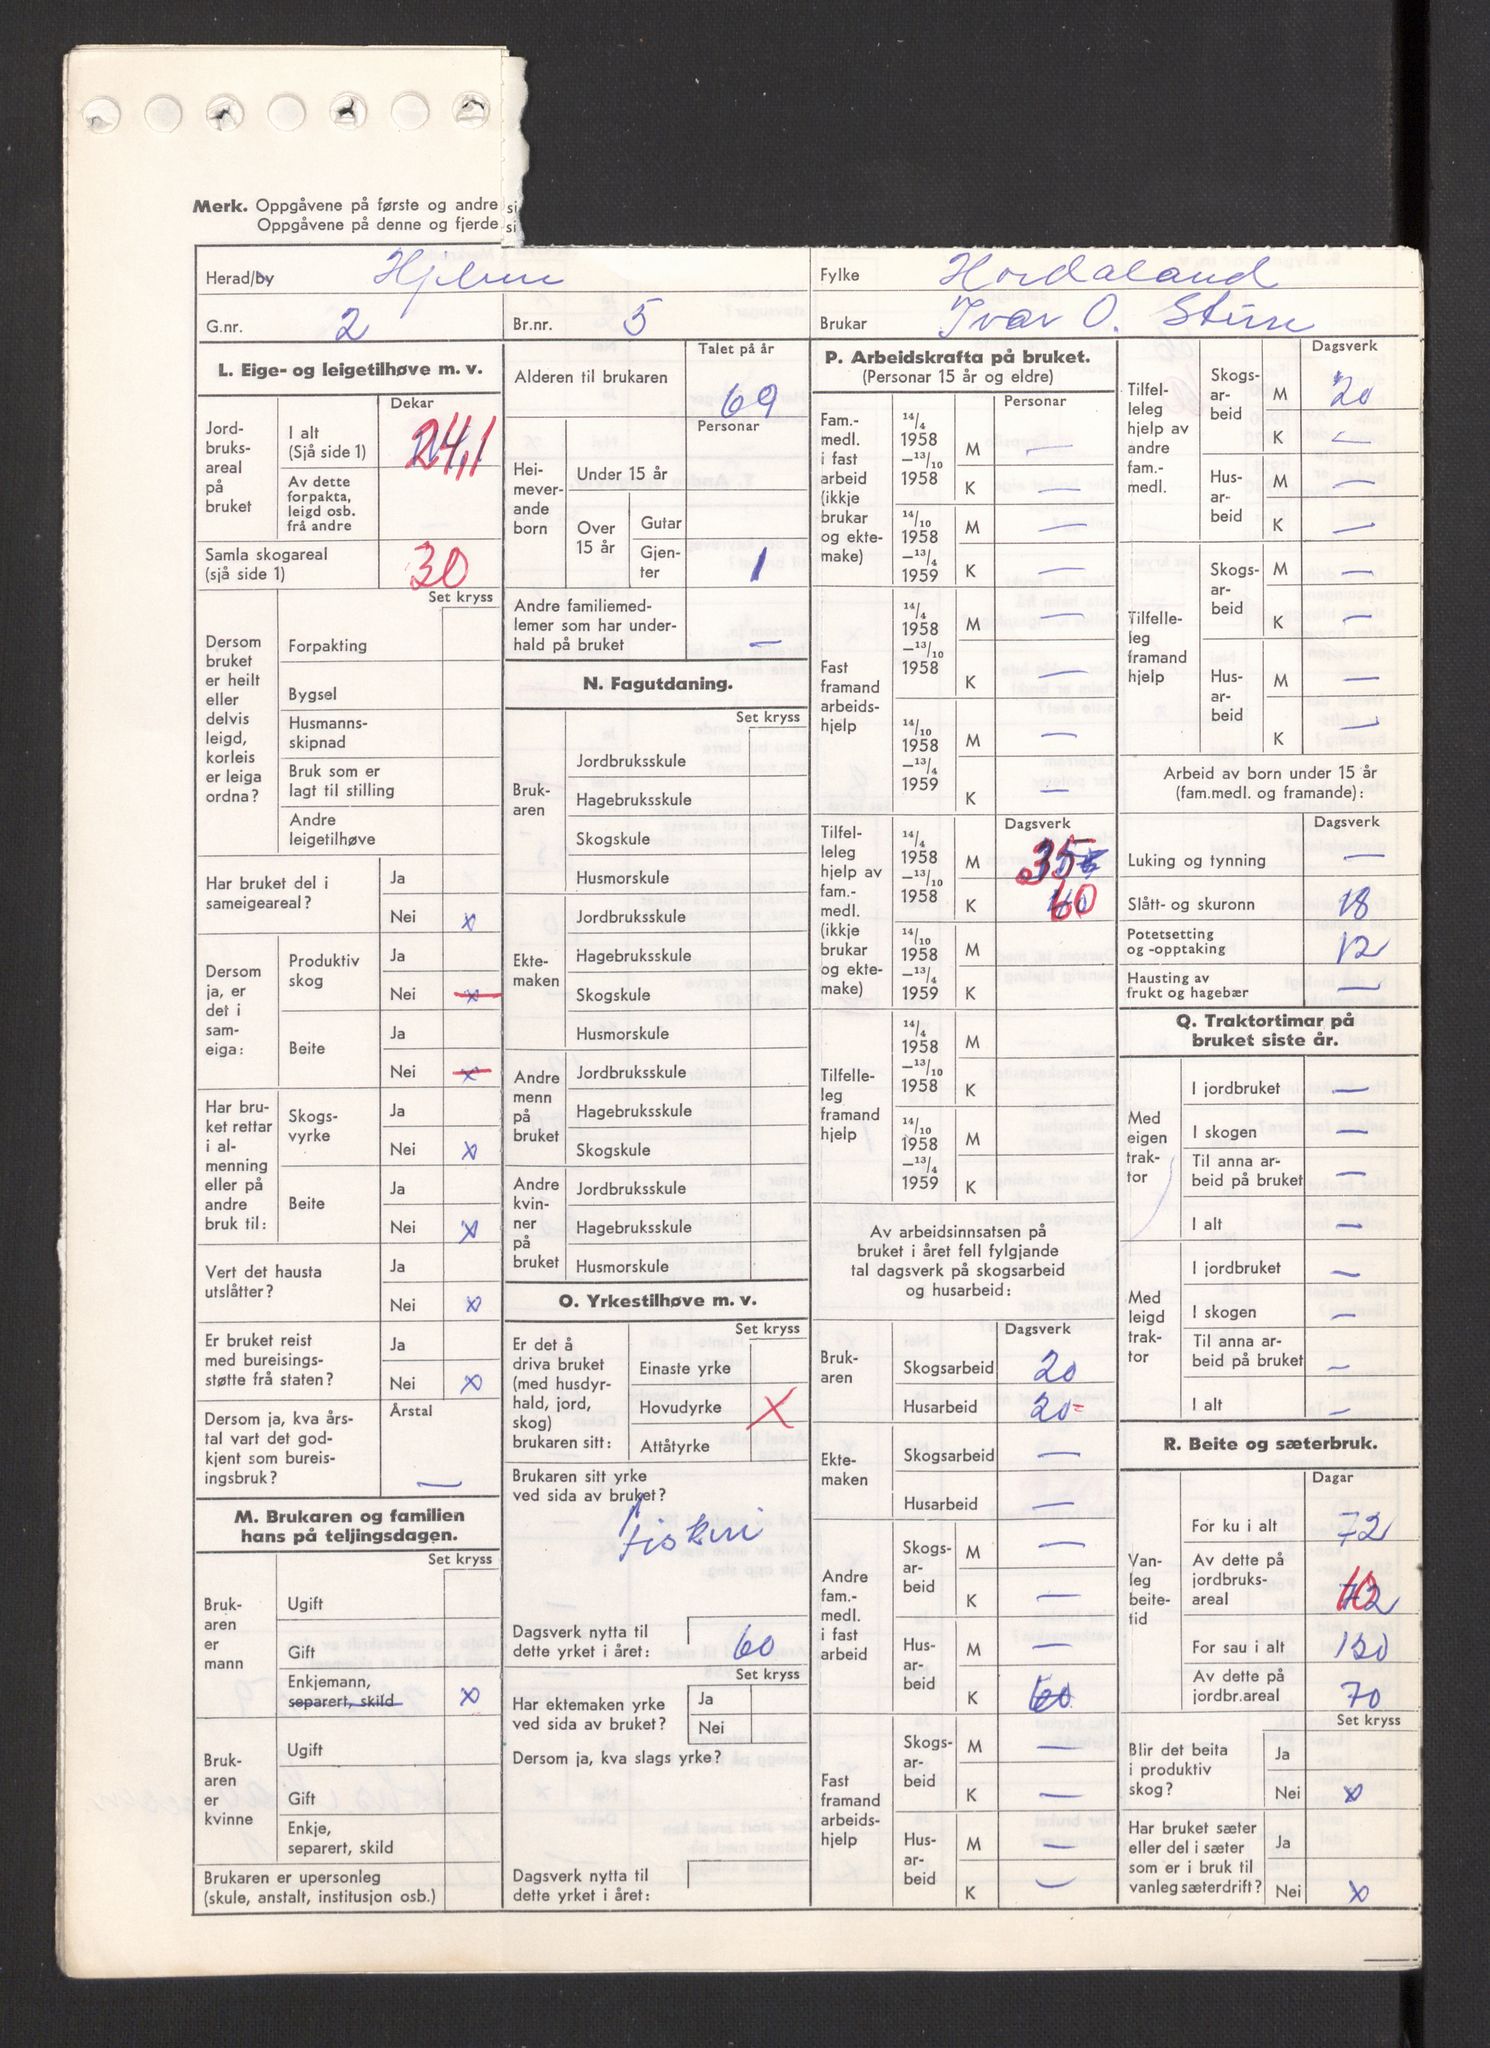 Merk. Oppgåvene på første og andre si
Oppgåvene på denne og fjerde si
Herad/by Hjelme
Fylke Hordaland
G.nr. 2
Br.nr. 5
Brukar Ivar O. Sture
L. Eige- og leigetilhøve m. v.
Jord-
bruks-
areal
på
bruket
Dekar
I alt
(Sjå side 1)
24,1
Av dette
forpakta,
leigd osb.
frå andre
Samla skogareal
(sjå side 1)
30
Set kryss
Dersom
bruket
er heilt
eller
delvis
leigd,
korleis
er leiga
ordna?
Forpakting
Bygsel
Husmanns-
skipnad
Bruk som er
lagt til stilling
Andre
leigetilhøve
Har bruket del i
sameigeareal?
Ja
Nei x
Dersom
ja, er
det i
sam-
eiga:
Produktiv
skog
Ja
Nei x
Beite
Ja
Nei x
Har bru-
ket rettar
i al-
menning
eller på
andre
bruk til:
Skogs-
vyrke
Ja
Nei x
Beite
Ja
Nei x
Vert det hausta
utslåtter?
Ja
Nei x
Er bruket reist
med bureisings-
støtte frå staten?
Ja
Nei x
Dersom ja, kva års-
tal vart det god-
kjent som bureis-
ingsbruk?
Årstal
—
M. Brukaren og familien
hans på teljingsdagen.
Set kryss
Bruk-
aren
er
mann
Ugift
Gift
Enkjemann,
separert, skild x
Bruk-
aren
er
kvinne
Ugift
Gift
Enkje,
separert, skild
Brukaren er upersonleg
(skule, anstalt, institusjon osb.)
Talet på år
Alderen til brukaren 69
Personar
Hei-
mever-
ande
born
Under 15 år
Over
15 år
Gutar
Gjen-
ter
1
Andre familiemed-
lemer som har under-
hald på bruket —
N. Fagutdaning.
Set kryss
Bruk-
aren
Jordbruksskule
Hagebruksskule
Skogskule
Husmorskule
Ekte-
maken
Jordbruksskule
Hagebruksskule
Skogskule
Husmorskule
Andre
menn
på
bruket
Jordbruksskule
Hagebruksskule
Skogskule
Andre
kvin-
ner
på
bruket
Jordbruksskule
Hagebruksskule
Husmorskule
O. Yrkestilhøve m. v.
Set kryss
Er det å
driva bruket
(med husdyr-
hald, jord,
skog)
brukaren sitt:
Einaste yrke
Hovudyrke X
Attåtyrke
Brukaren sitt yrke
ved sida av bruket?
Fiskeri
Dagsverk nytta til
dette yrket i året: 60
Set kryss
Har ektemaken yrke
ved sida av bruket?
Ja
Nei
Dersom ja, kva slags yrke?
Dagsverk nytta til
dette yrket i året:
P. Arbeidskrafta på bruket.
(Personar 15 år og eldre)
Personar
Fam.-
medl.
i fast
arbeid
(ikkje
brukar
og ekte-
make)
14/4
1958
—13/10
1958
M —
K —
14/10
1958
—13/4
1959
M —
K —
Fast
framand
arbeids-
hjelp
14/4
1958
—13/10
1958
M —
K —
14/10
1958
—13/4
1959
M —
K —
Dagsverk
Tilfel-
leleg
hjelp av
fam.-
medl.
(ikkje
brukar
og ekte-
make)
14/4
1958
—13/10
1958
M 35
K 60
14/10
1958
—13/4
1959
M
K
Tilfelle-
leg
framand
hjelp
14/4
1958
—13/10
1958
M
K
14/10
1958
—13/4
1959
M
K
Av arbeidsinnsatsen på
bruket i året fell fylgjande
tal dagsverk på skogsarbeid
og husarbeid:
Dagsverk
Bruk-
aren
Skogsarbeid 20
Husarbeid 20-
Ekte-
maken
Skogsarbeid —
Husarbeid —
Andre
fam.-
medl.
i fast
arbeid
Skogs-
ar-
beid
M —
K —
Hus-
ar-
beid
M —
K 60
Fast
framand
arbeids-
hjelp
Skogs-
ar-
beid
M —
K —
Hus-
ar-
beid
M —
K —
Dagsverk
Tilfel-
leleg
hjelp av
andre
fam.-
medl.
Skogs-
ar-
beid
M 20
K —
Hus-
ar-
beid
M —
K —
Tilfelle-
leg
framand
hjelp
Skogs-
ar-
beid
M —
K —
Hus-
ar-
beid
M —
K —
Arbeid av born under 15 år
(fam.medl. og framande):
Dagsverk
Luking og tynning —
Slått- og skuronn 18
Potetsetting
og -opptaking 12
Hausting av
frukt og hagebær —
Q. Traktortimar på
bruket siste år.
Med
eigen
trak-
tor
I jordbruket —
I skogen —
Til anna ar-
beid på bruket —
I alt —
Med
leigd
trak-
tor
I jordbruket —
I skogen —
Til anna ar-
beid på bruket —
I alt —
R. Beite og sæterbruk.
Dagar
Van-
leg
beite-
tid
For ku i alt 72
Av dette på
jordbruks-
areal
10
For sau i alt 130
Av dette på
jordbr.areal 70
Set kryss
Blir det beita
i produktiv
skog?
Ja
Nei x
Har bruket sæter
eller del i sæter
som er i bruk til
vanleg sæterdrift?
Ja
Nei x